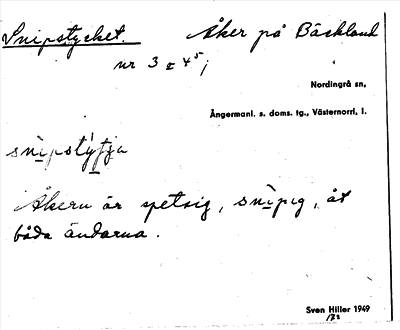 Snipstycket. Åker på Bäckland
nr 3 z 4⁵;
Nordingrå sn,
Ångermanl. s. doms. tg., Västernorrl, l.
åkern är spetsig, snìpig, åt
båda ändarna.
Sven Hiller 1949